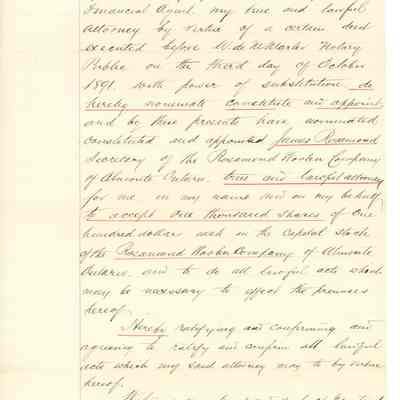 Financial Agent. my true and lawful
attorney by virtue of a certain deed
executed before W. de M. Marler Notary
Public on the third day of October
1891. with power of substitution, do
hereby nominate constitute and appoint,
and by these presents have nominated
constituted and appointed James Rosamond
Secretary of the Rosamond Woolen Company
of Almonte Ontario. true and lawful attorney
for me in my name and on my behalf
to accept one thousand shares of One
hundred dollars each in the Capital Stock
of the Rosamond Woolen Company of Almonte
Ontario. and to do all lawful acts which
may be necessary to effect the premises
hereof.
Hereby ratifying and confirming and
agreeing to ratify and confirm all lawful
acts which my said attorney may do by virtue
hereof.